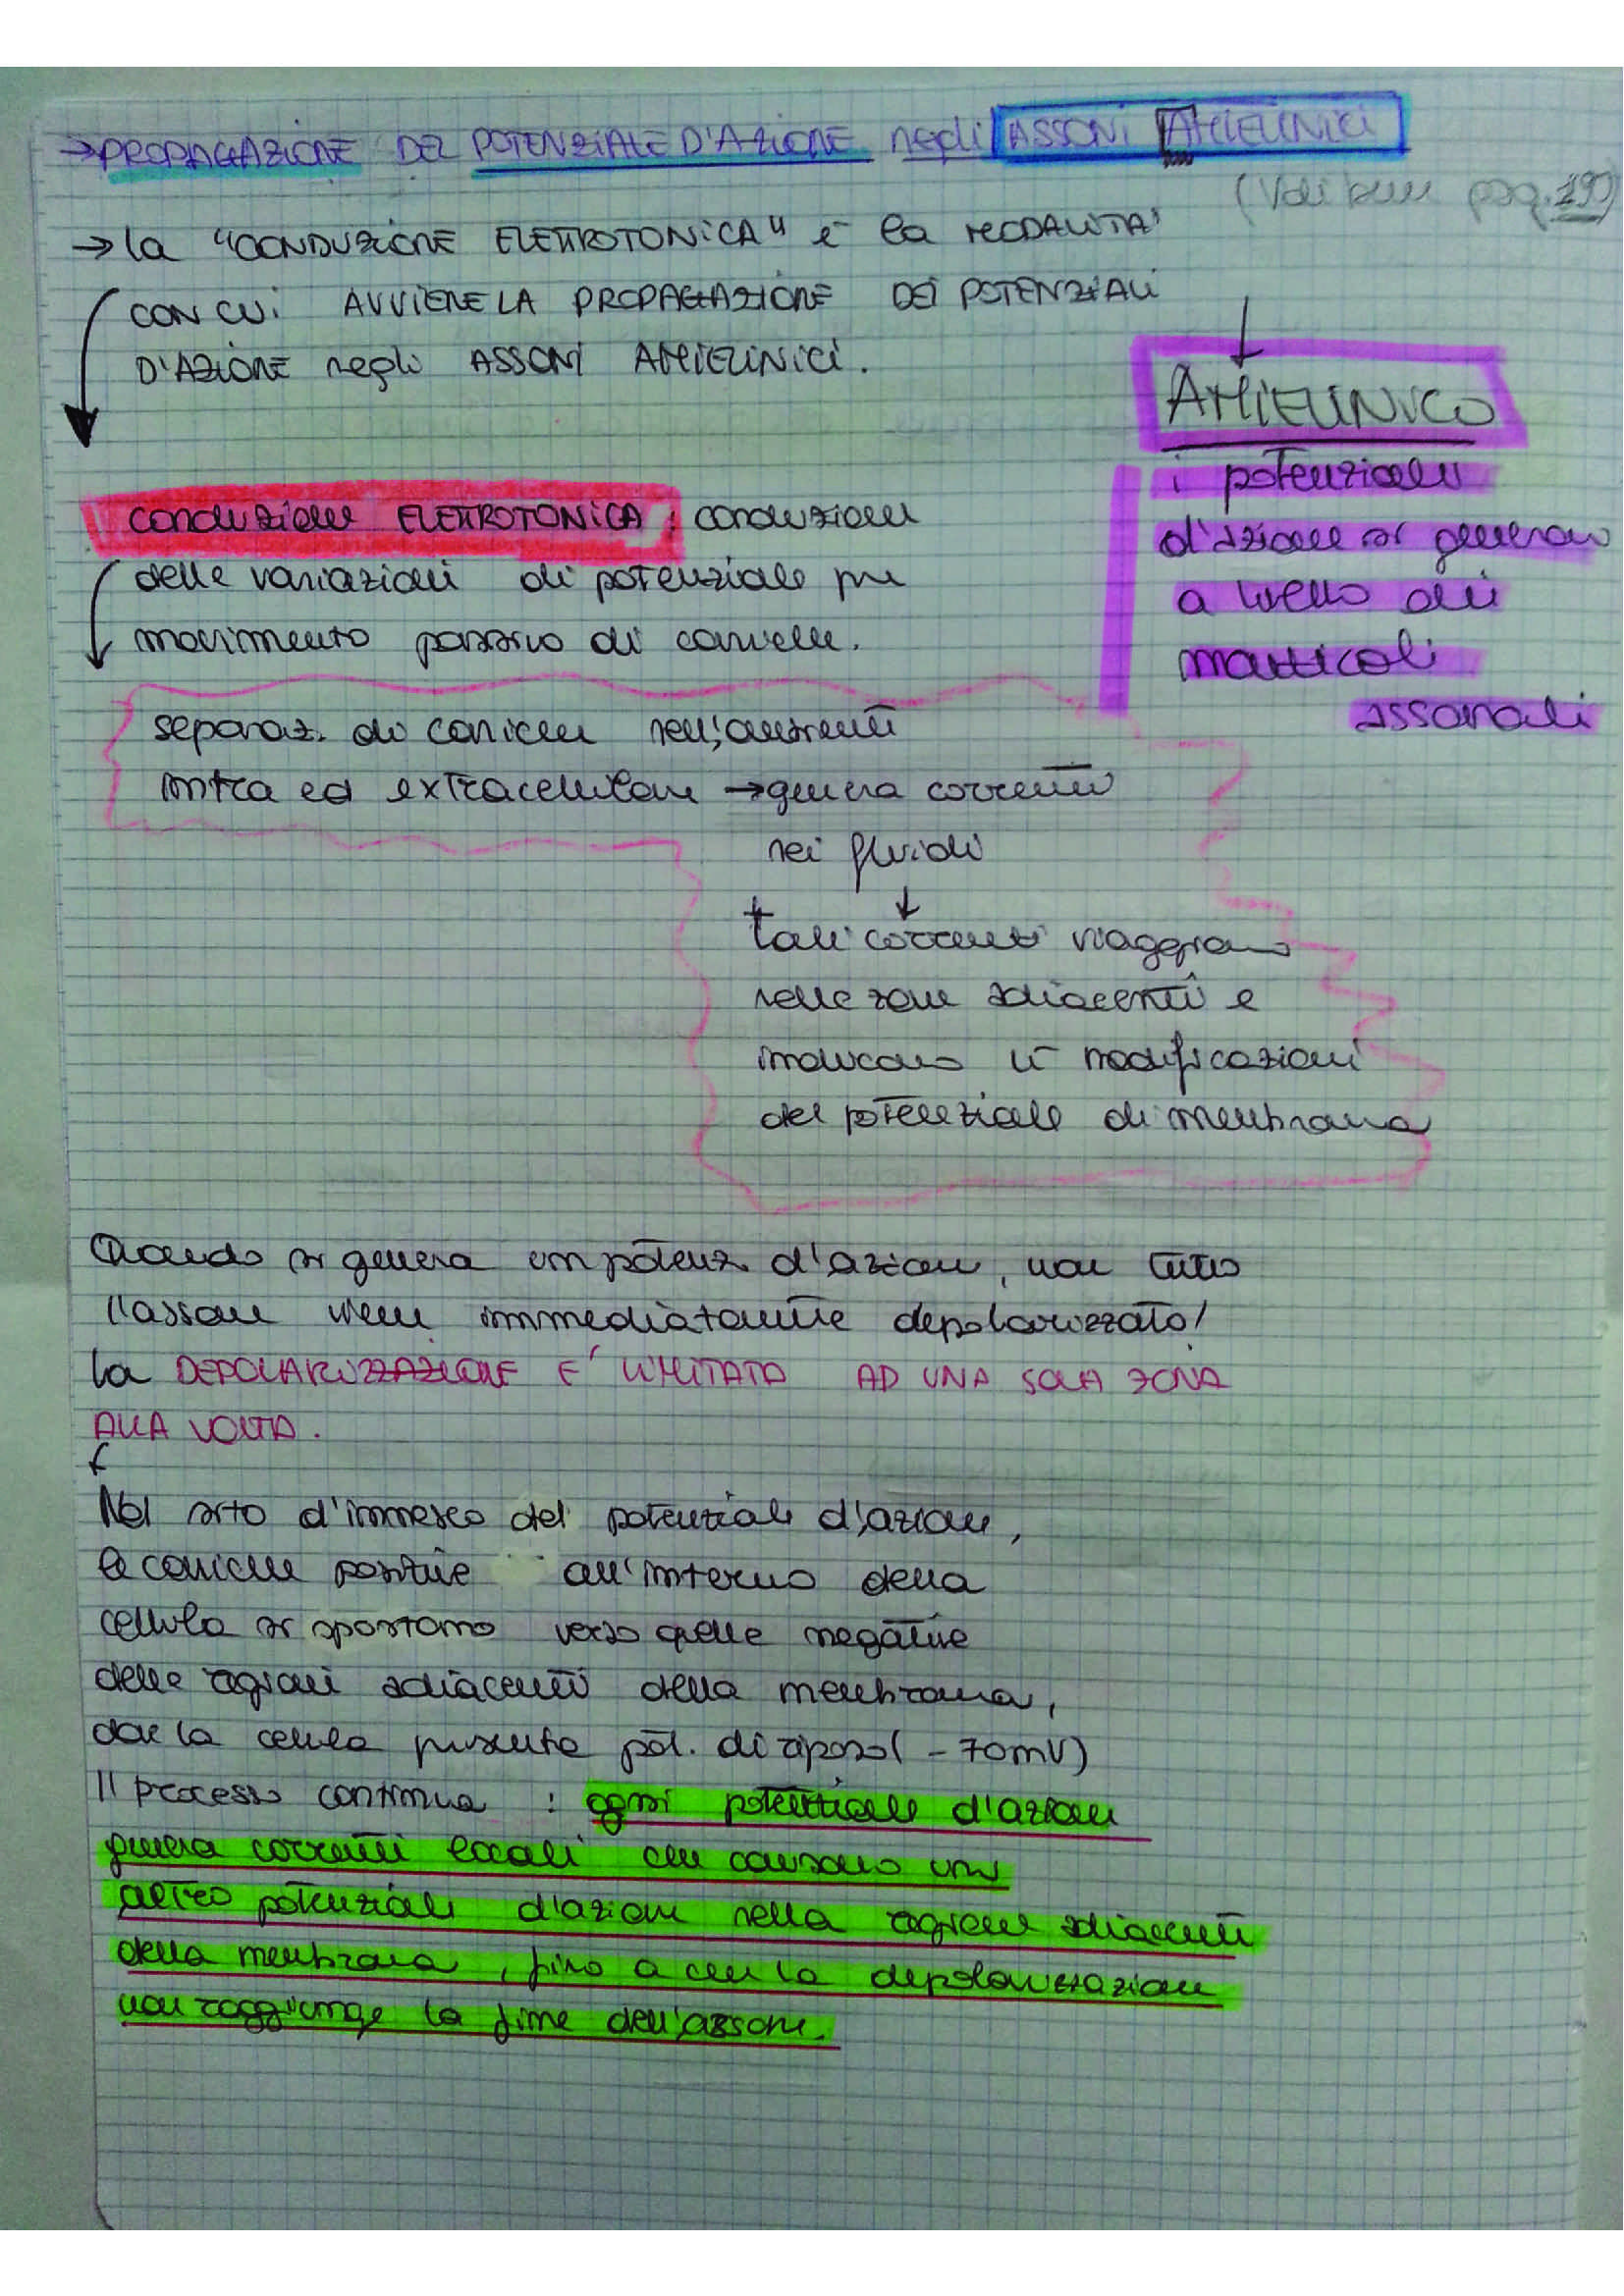 → PROPAGAZIONE DEL POTENZIALE D'AZIONE negli ASSONI AMIELINICI
(Vedi bene pag. 190)
→ la "CONDUZIONE ELETTROTONICA" è la MODALITA'
CON CUI AVVIENE LA PROPAGAZIONE DEI POTENZIALI
D'AZIONE negli ASSONI AMIELINICI.
AMIELINICO
i potenziali
d'azione si generano
a livello dei
monticoli
assonali
conduzione ELETTROTONICA: conduzione
delle variazioni di potenziale per
movimento passivo di cariche.
separaz. di cariche nell'ambiente
intra ed extracellulare → genera correnti
nei fluidi
↓
tali correnti viaggiano
nelle zone adiacenti e
inducono lì modificazioni
del potenziale di membrana
Quando si genera un potenz. d'azione, non tutto
l'assone viene immediatamente depolarizzato!
la DEPOLARIZZAZIONE E' LIMITATA AD UNA SOLA ZONA
ALLA VOLTA.
Nel sito d'innesco del potenziale d'azione,
le cariche positive all'interno della
cellula si spostano verso quelle negative
delle regioni adiacenti della membrana,
dove la cellula presenta pot. di riposo (-70mV)
Il processo continua: ogni potenziale d'azione
genera correnti locali che causano un
altro potenziale d'azione nella regione adiacente
della membrana, fino a che la depolarizzazione
non raggiunge la fine dell'assone.